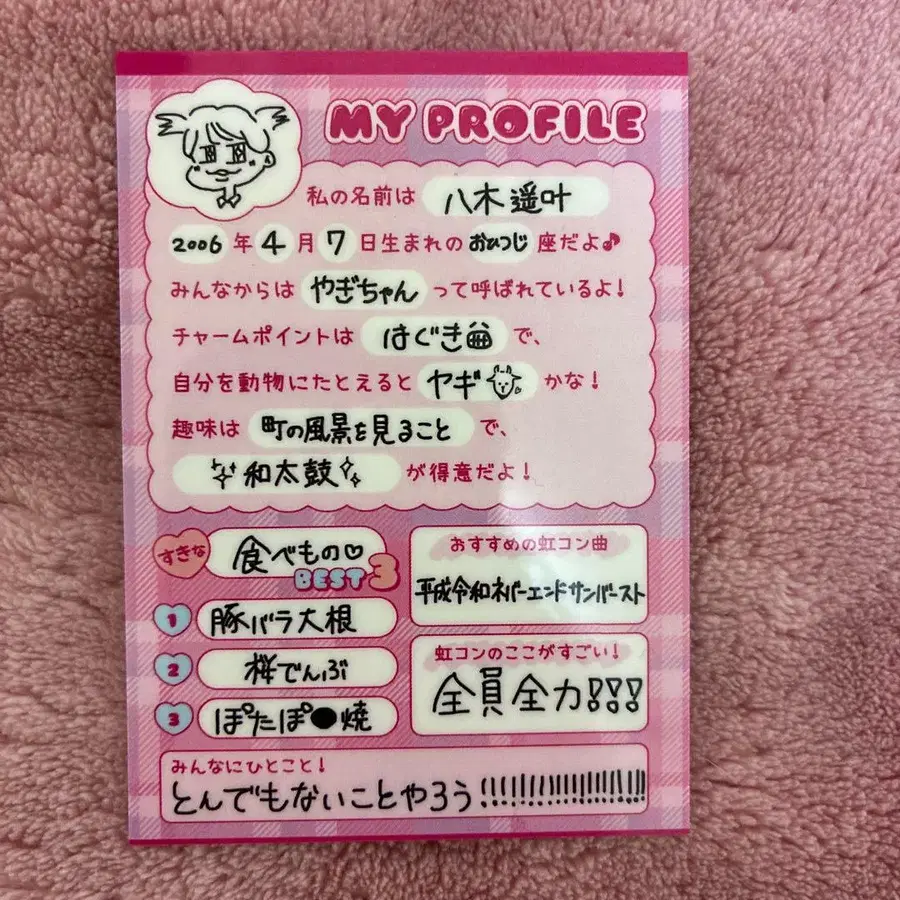 MY PROFILE
私の名前は 八木遥叶
2006年4月7日生まれのおひつじ座だよ♪
みんなからは やぎちゃん って呼ばれているよ!
チャームポイントは はぐき で、
自分を動物にたとえると ヤギ かな!
趣味は 町の風景を見ること で、
和太鼓 が得意だよ!
すきな 食べもの♡ BEST3
1 豚バラ大根
2 桜でんぶ
3 ぽたぽ●焼
おすすめの虹コン曲
平成令和ネバーエンドサンバースト
虹コンのここがすごい!
全員全力!!!
みんなにひとこと!
とんでもないことやろう!!!!!!!!!!!!!!!!!!!!